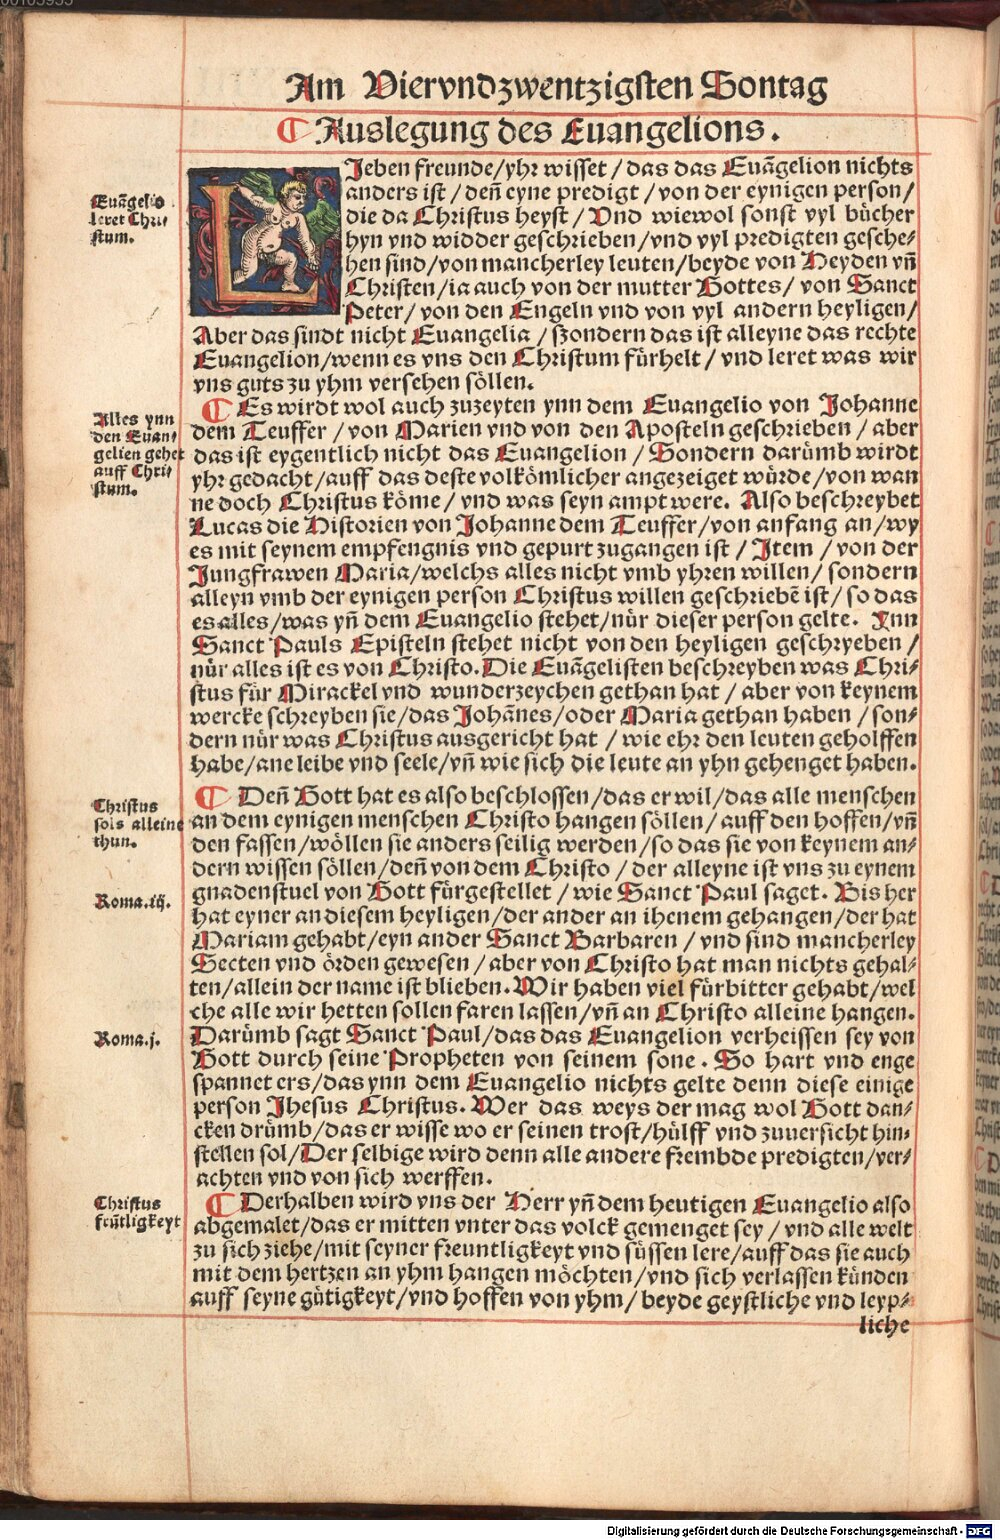 Am Viervndzwentzigsten Sontag
Auslegung des Euangelions.
LJeben freunde/yhr wisset/das das Euãgelion nichts
anders ist/deñ eyne predigt/von der eynigen person/
die da Christus heyst/Vnd wiewol sonst vyl bücher
hyn vnd widder geschrieben/vnd vyl predigten gesche-
hen sind/von mancherley leuten/beyde von Heyden vñ
Christen/ia auch von der mutter Gottes/von Sanct
Peter/von den Engeln vnd von vyl andern heyligen/
Aber das sindt nicht Euangelia/szondern das ist alleyne das rechte
Euangelion/wenn es vns den Christum fürhelt/vnd leret was wir
vns guts zu yhm versehen söllen.
Es wirdt wol auch zuzeyten ynn dem Euangelio von Johanne
dem Teuffer/von Marien vnd von den Aposteln geschrieben/aber
das ist eygentlich nicht das Euangelion/Sondern darümb wirdt
yhr gedacht/auff das deste volkömlicher angezeiget würde/von wan
ne doch Christus köme/vnd was seyn ampt were. Also beschreybet
Lucas die Historien von Johanne dem Teuffer/von anfang an/wy
es mit seynem empfengnis vnd gepurt zugangen ist/Item/von der
Jungfrawen Maria/welchs alles nicht vmb yhren willen/sondern
alleyn vmb der eynigen person Christus willen geschriebẽ ist/so das
es alles/was yñ dem Euangelio stehet/nür dieser person gelte. Inn
Sanct Pauls Episteln stehet nicht von den heyligen geschryeben/
nür alles ist es von Christo. Die Euãgelisten beschreyben was Chri-
stus für Mirackel vnd wunderzeychen gethan hat/aber von keynem
wercke schreyben sie/das Johãnes/oder Maria gethan haben/son-
dern nür was Christus ausgericht hat/wie ehr den leuten geholffen
habe/ane leibe vnd seele/vñ wie sich die leute an yhn gehenget haben.
Deñ Gott hat es also beschlossen/das er wil/das alle menschen
an dem eynigen menschen Christo hangen söllen/auff den hoffen/vñ
den fassen/wöllen sie anders seilig werden/so das sie von keynem an-
dern wissen söllen/deñ von dem Christo/der alleyne ist vns zu eynem
gnadenstuel von Gott fürgestellet/wie Sanct Paul saget. Bis her
hat eyner an diesem heyligen/der ander an ihenem gehangen/der hat
Mariam gehabt/eyn ander Sanct Barbaren/vnd sind mancherley
Secten vnd örden gewesen/aber von Christo hat man nichts gehal-
ten/allein der name ist blieben. Wir haben viel fürbitter gehabt/wel
che alle wir hetten sollen faren lassen/vñ an Christo alleine hangen.
Darümb sagt Sanct Paul/das das Euangelion verheissen sey von
Gott durch seine Propheten von seinem sone. So hart vnd enge
spannet ers/das ynn dem Euangelio nichts gelte denn diese einige
person Jhesus Christus. Wer das weys der mag wol Gott dan-
cken drümb/das er wisse wo er seinen trost/hülff vnd zuuersicht hin-
stellen sol/Der selbige wird denn alle andere frembde predigten/ver-
achten vnd von sich werffen.
Derhalben wird vns der Herr yñ dem heutigen Euangelio also
abgemalet/das er mitten vnter das volck gemenget sey/vnd alle welt
zu sich ziehe/mit seyner freuntligkeyt vnd süssen lere/auff das sie auch
mit dem hertzen an yhm hangen möchten/vnd sich verlassen künden
auff seyne gütigkeyt/vnd hoffen von yhm/beyde geystliche vnd leyp-
liche
Euãgelio
leret Chri-
stum.
Alles ynn
den Euan-
gelien gehet
auff Chri-
stum.
Christus
sols alleine
thun.
Roma.iij.
Roma.j.
Christus
freütligkeyt
Digitalisierung gefördert durch die Deutsche Forschungsgemeinschaft - DFG